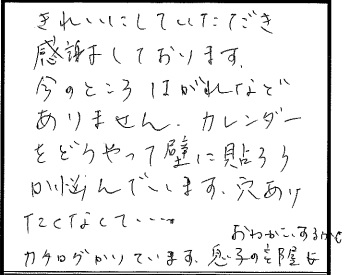 きれいにしていただき
感謝しております。
今のところはがれなど
ありません。カレンダー
をどうやって壁に貼ろう
か悩んでいます。穴あけ
たくなくて・・・・
カタログかりています。息子の部屋も